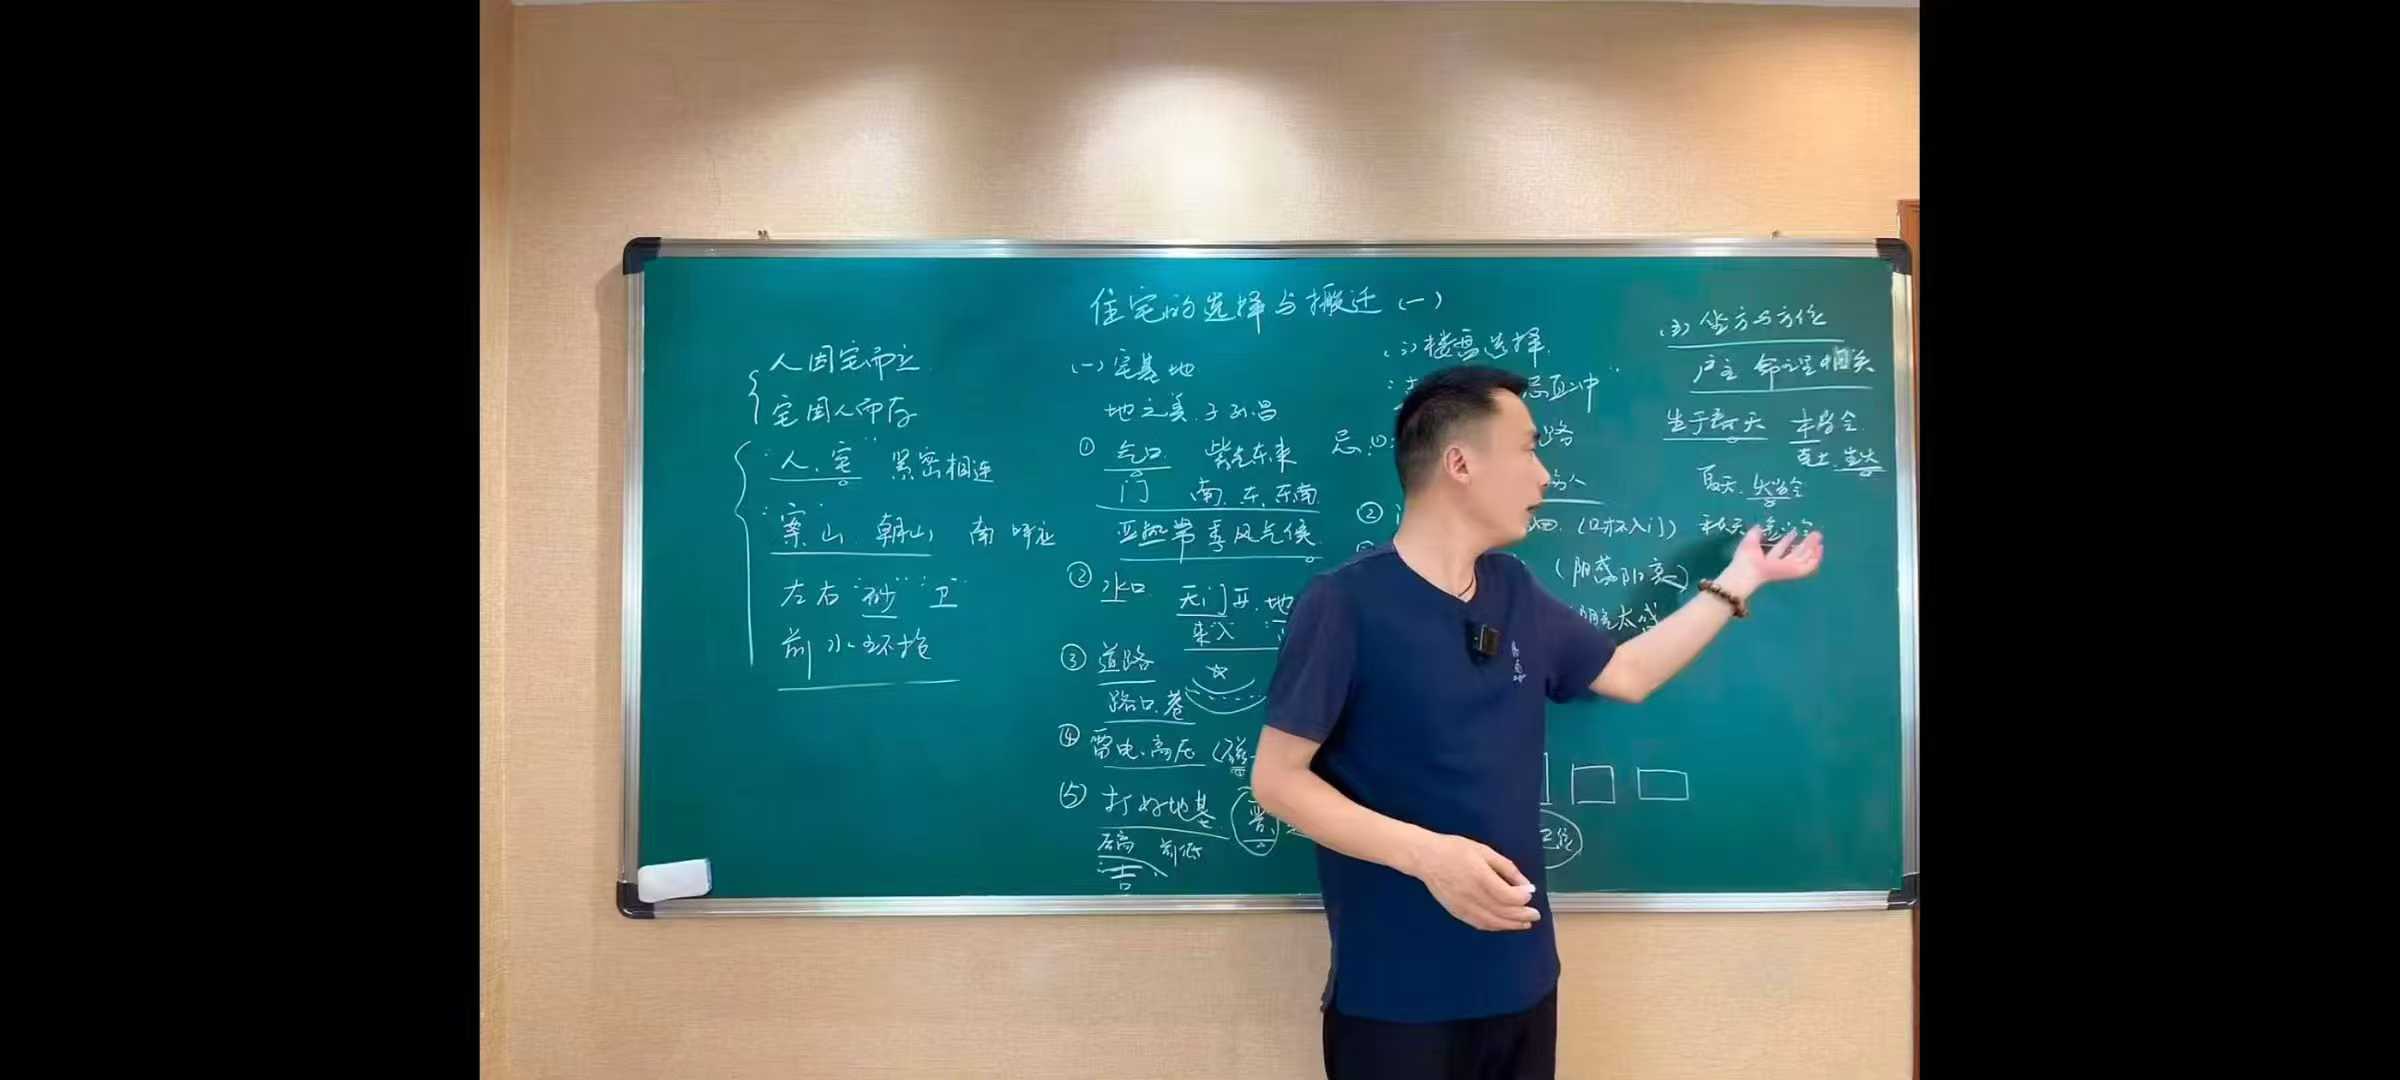 住宅的选择与搬迁(一)
人因宅而立
宅因人而存
"人、宅" 紧密相连
"案"山 朝山 南 呼应
左右"砂" "卫"
前水环抱
(一)宅基地
地之美,子孙昌
① 气口 紫气东来
门 南、东、东南
亚热带季风气候
② 水口 天门开,地
来入
③ 道路
路口、巷
④ 雷电、高压(磁
⑤ 打好地基
后高 前低
吉
(二)楼盘选择
忌直冲"
忌:①
路
②
(口不入门)
(阴盛阳衰)
阴气太盛
卫位
(三)坐方与方位
户主 命之星相关
生于春天 木当令
克土、生火
夏天、火当令
秋天、金当令